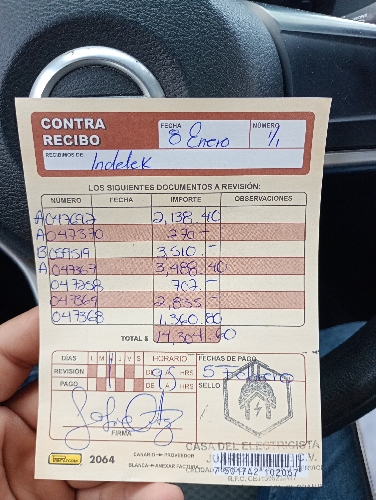 CONTRA RECIBO
FECHA
8 Enero
NÚMERO
1/1
RECIBIMOS DE:
Indelek
LOS SIGUIENTES DOCUMENTOS A REVISIÓN:
NÚMERO FECHA IMPORTE OBSERVACIONES
A 2,138.40
A 047370 270.-
B 3,510.-
A 047367 3,488.40
047258 702.-
047369 2,835.-
047368 1,360.80
TOTAL $ 14,304.60
DÍAS L M M J V S HORARIO FECHAS DE PAGO
REVISIÓN DE 9 A 5 HRS 5 Febrero
PAGO DE A HRS SELLO
FIRMA
2064
CANARIO PROVEEDOR
BLANCA ANEXAR FACTURA
CASA DEL ELECTRICISTA
C.V.
7501742102067